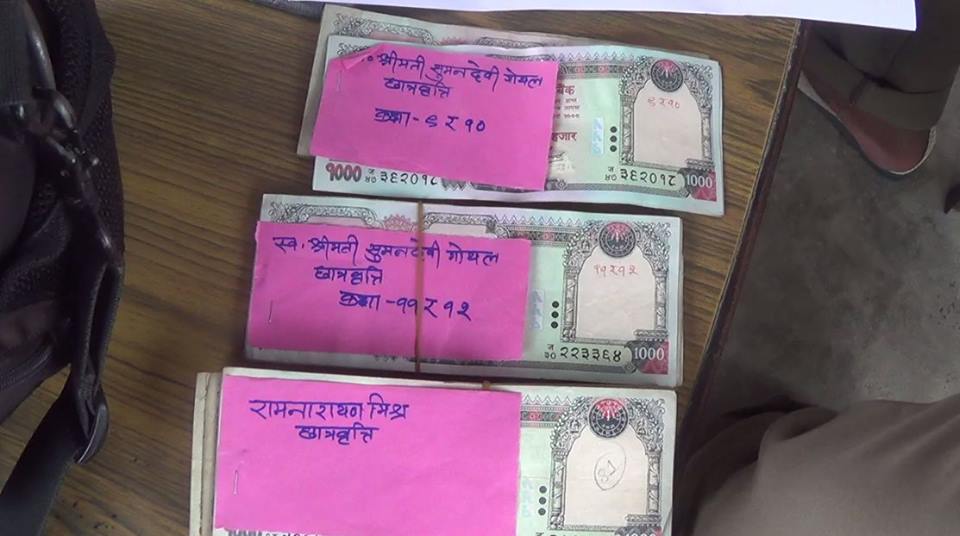 स्व. श्रीमती सुमनदेवी गोयल
छात्रवृत्ति
कक्षा - ९ र १०
९ र १०
हजार
१०००
३६२०१८
1000
स्व. श्रीमती सुमनदेवी गोयल
छात्रवृत्ति
कक्षा - ११ र १२
११ र १२
२२३३६४
1000
रामनारायण मिश्र
छात्रवृत्ति